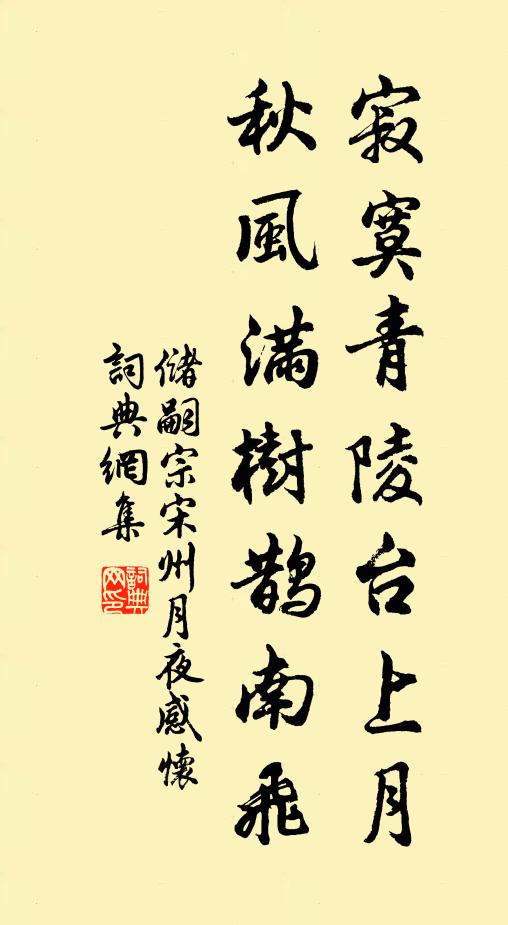 寂寞青陵台上月
秋風满樹鹊南飛
儲嗣宗宋州月夜感懷
詞典網集
詞典網印